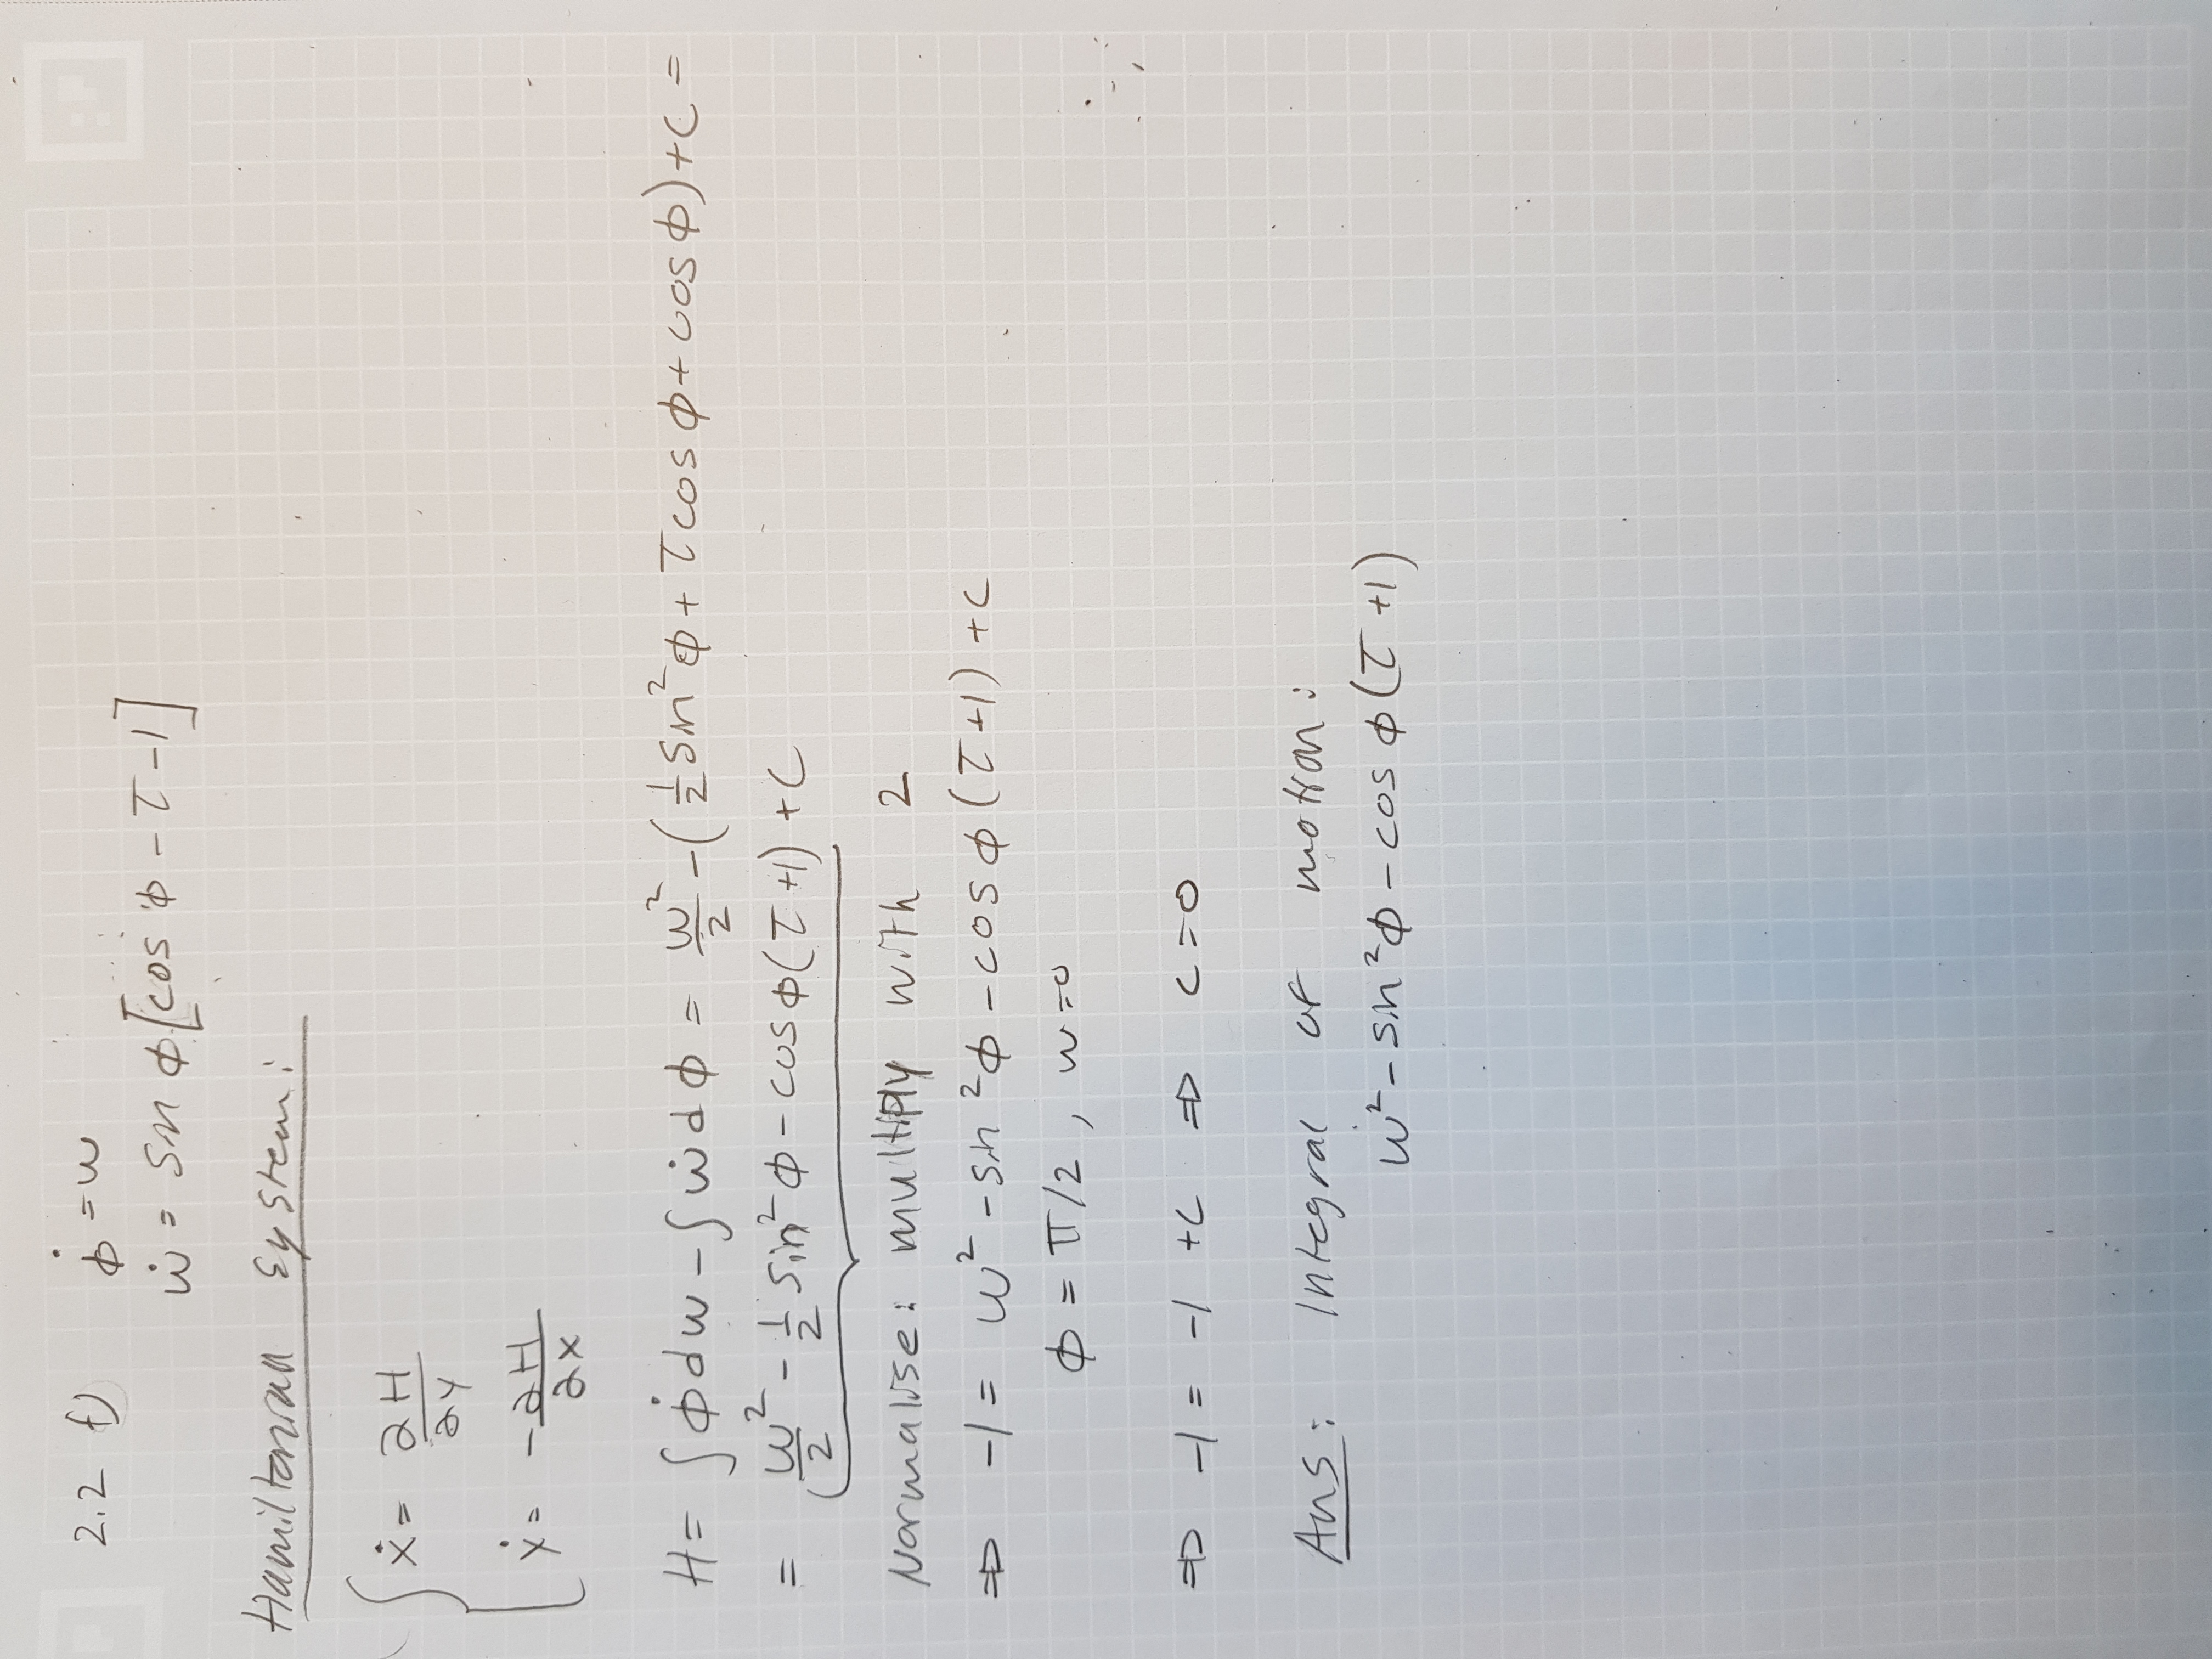 2.2 f) ϕ̇ = w
ẇ = sin ϕ [cos ϕ - τ - 1]
Hamiltonian System:
ẋ = ∂H/∂y
ẏ = -∂H/∂x
H = ∫ ϕ̇ dw - ∫ ẇ dϕ = w²/2 - (1/2 sin² ϕ + τ cos ϕ + cos ϕ) + c =
= w²/2 - 1/2 sin² ϕ - cos ϕ (τ + 1) + c
Normalise: multiply with 2
⇒ -1 = w² - sin² ϕ - cos ϕ (τ + 1) + c
ϕ = π/2, w = 0
⇒ -1 = -1 + c ⇒ c = 0
Ans: Integral of motion:
w² - sin² ϕ - cos ϕ (τ + 1)